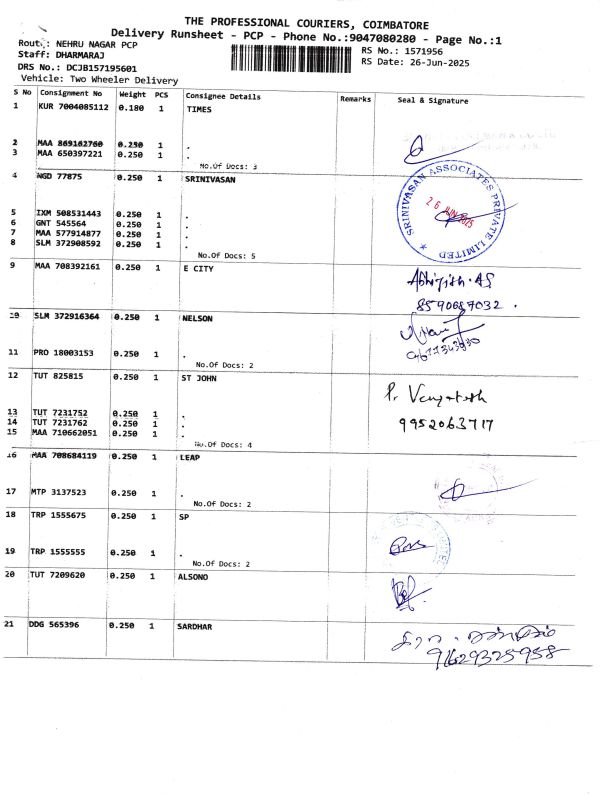 THE PROFESSIONAL COURIERS, COIMBATORE
Delivery Runsheet - PCP - Phone No.:9047080280 - Page No.:1
Route: NEHRU NAGAR PCP
RS No.: 1571956
Staff: DHARMARAJ
RS Date: 26-Jun-2025
DRS No.: DCJB157195601
Vehicle: Two Wheeler Delivery
S No Consignment No Weight PCS Consignee Details Remarks Seal & Signature
1 KUR 7004085112 0.180 1 TIMES
2 MAA 869162760 0.250 1 .
3 MAA 650397221 0.250 1 .
No.Of Docs: 3
4 NGD 77875 0.250 1 SRINIVASAN
SRINIVASAN ASSOCIATES PRIVATE LIMITED
26 JUN 2025
5 IXM 508531443 0.250 1 .
6 GNT 545564 0.250 1 .
7 MAA 577914877 0.250 1 .
8 SLM 372908592 0.250 1 .
No.Of Docs: 5
9 MAA 708392161 0.250 1 E CITY
Abhijith.AS
8590687032.
10 SLM 372916364 0.250 1 NELSON
11 PRO 18003153 0.250 1 .
No.Of Docs: 2
12 TUT 825815 0.250 1 ST JOHN
P. Venkatesh
9952063717
13 TUT 7231752 0.250 1 .
14 TUT 7231762 0.250 1 .
15 MAA 710662051 0.250 1 .
No.Of Docs: 4
16 MAA 708684119 0.250 1 LEAP
17 MTP 3137523 0.250 1 .
No.Of Docs: 2
18 TRP 1555675 0.250 1 SP
19 TRP 1555555 0.250 1 .
No.Of Docs: 2
20 TUT 7209620 0.250 1 ALSONO
21 DDG 565396 0.250 1 SARDHAR
9629325958